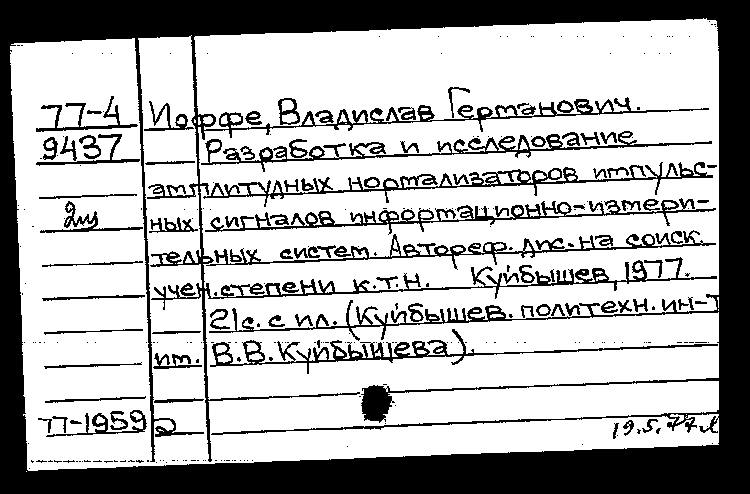 77-4 Иоффе, Владислав Германович.
9437 Разработка и исследование
амплитудных нормализаторов импульс-
ных сигналов информационно-измери-
тельных систем. Автореф. дис. на соиск.
учен. степени к.т.н. Куйбышев, 1977.
21с. с ил. (Куйбышев. политехн. ин-т
им. В.В. Куйбышева).
77-1959
19.5.77